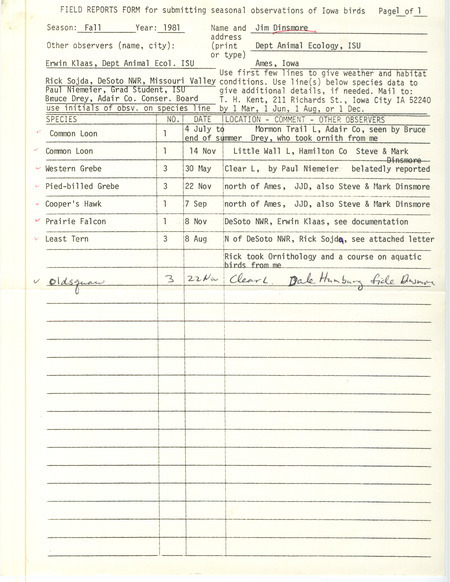 FIELD REPORTS FORM for submitting seasonal observations of Iowa birds Page1 of 1
Season: Fall Year: 1981 Name and Jim Dinsmore
address
Other observers (name, city): (print Dept Animal Ecology, ISU
or type)
Erwin Klaas, Dept Animal Ecol. ISU Ames, Iowa
Use first few lines to give weather and habitat
Rick Sojda, DeSoto NWR, Missouri Valley conditions. Use line(s) below species data to
Paul Niemeier, Grad Student, ISU give additional details, if needed. Mail to:
Bmuce Drey, Adair Co. Conser. Board T. H. Kent, 211 Richards St., Iowa City IA 52240
use initials of obsv. on species line by 1 Mar, 1 Jun, 1 Aug, or 1 Dec.
SPECIES NO. DATE LOCATION - COMMENT - OTHER OBSERVERS
4 July to Mormon Trail L, Adair Co, seen by Bruce
Common Loon 1 end of summer Drey, who took ornith from me
Common Loon 1 14 Nov Little Wall L, Hamilton Co Steve & Mark
Dinsmore
Western Grebe 3 30 May Clear L, by Paul Niemeier belatedly reported
Pied-billed Grebe 3 22 Nov north of Ames, JJD, also Steve & Mark Dinsmore
Cooper's Hawk 1 7 Sep north of Ames, JJD, also Steve & Mark Dinsmore
Prairie Falcon 1 8 Nov DeSoto NWR, Erwin Klaas, see documentation
Least Tern 3 8 Aug N of DeSoto NWR, Rick Sojda, see attached letter
Rick took Ornithology and a course on aquatic
birds from me
Oldsquaw 3 22 Nov Clear L. Dale Humburg fide Dinsmore